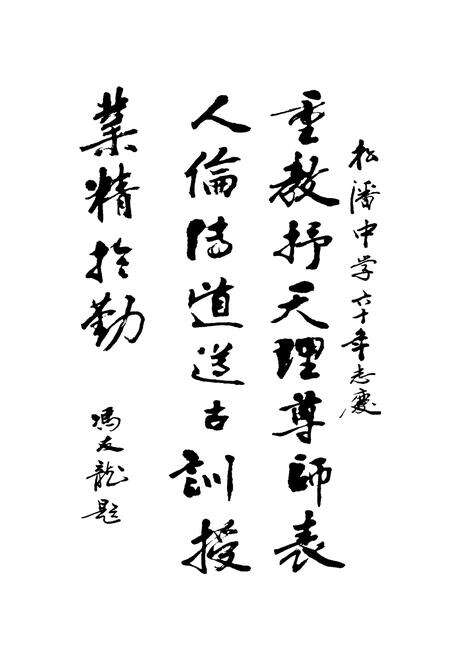 松潘中学六十年志慶
重教抒天理尊師表
人倫傳道遵古訓授
業精於勤
馮友龍題